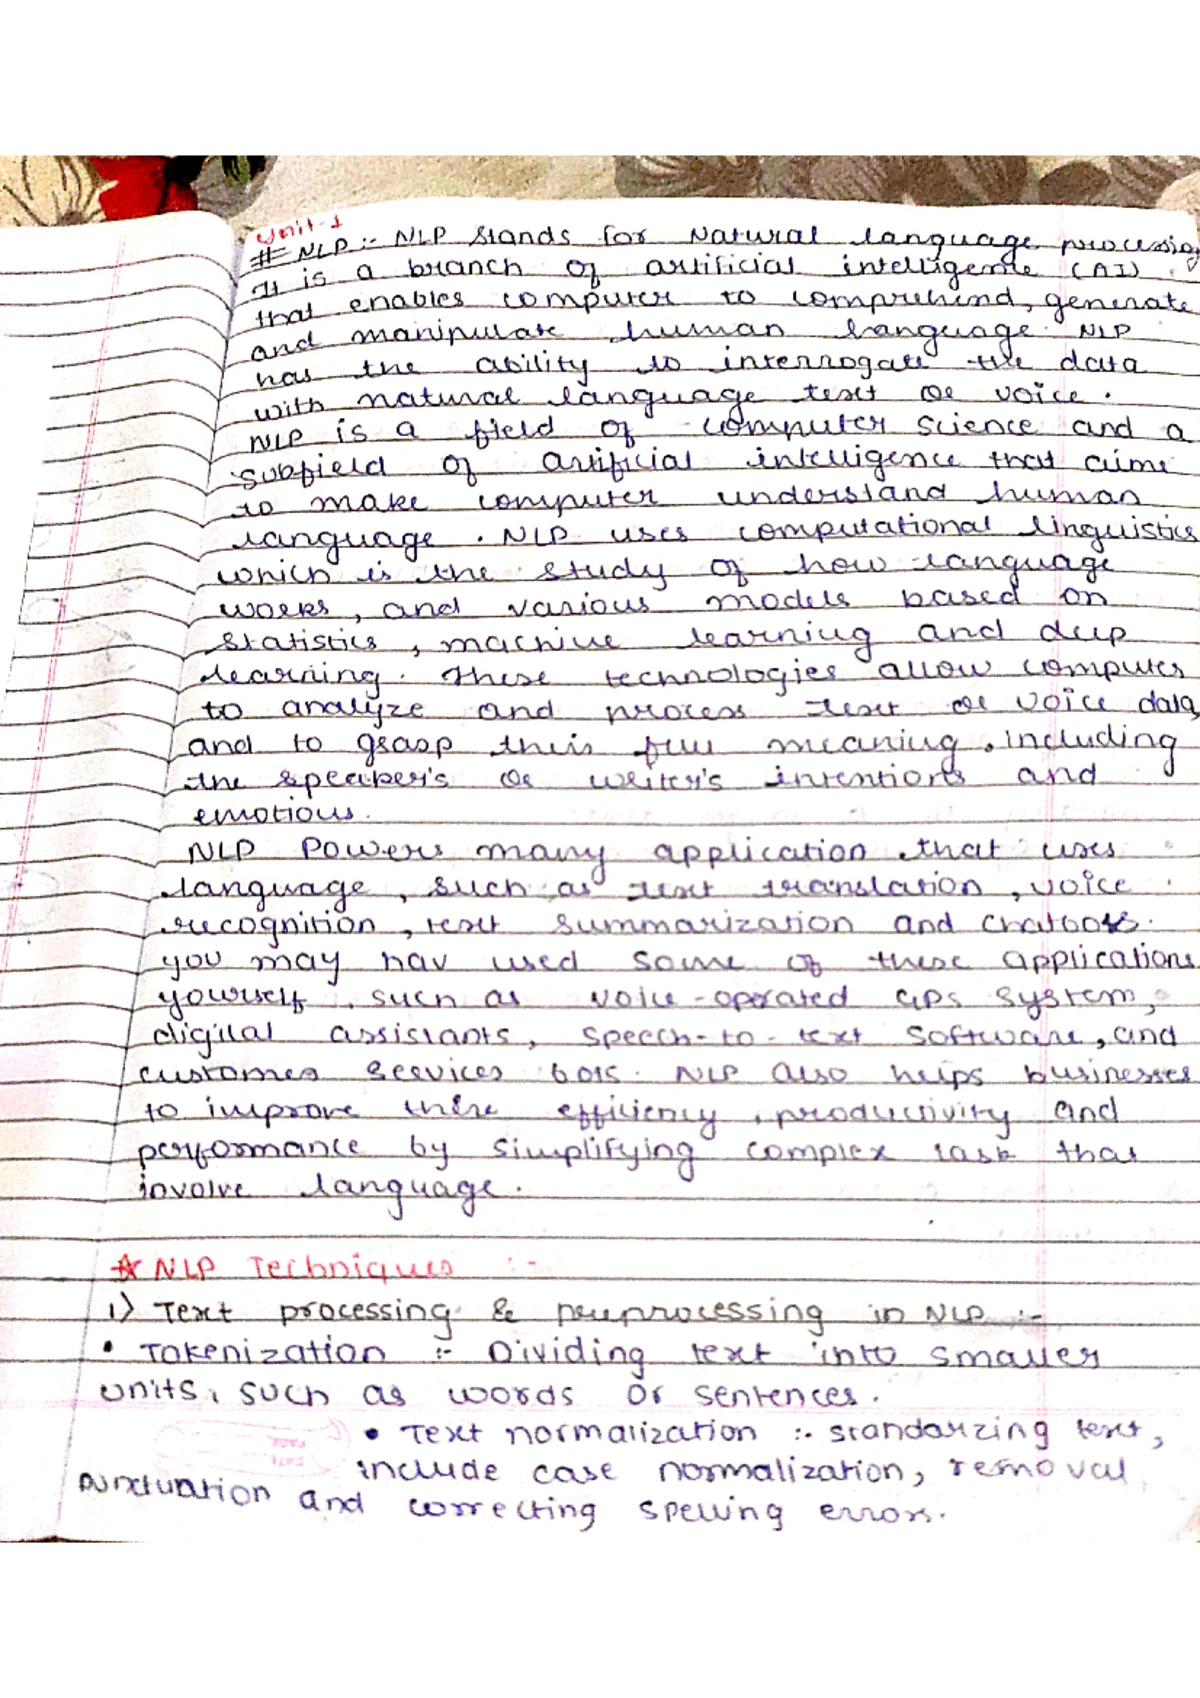 Unit-1
# NLP :- NLP stands for Natural language processing
It is a branch of artificial intelligence (AI)
that enables computer to comprehend, generate
and manipulate human language. NLP
has the ability to interrogate the data
with natural language text or voice.
NLP is a field of computer science and a
subfield of artificial intelligence that aims
to make computer understand human
language. NLP uses computational linguistics
which is the study of how language
works, and various models based on
statistics, machine learning and deep
learning. These technologies allow computers
to analyze and process text or voice data,
and to grasp their full meaning, including
the speaker's or writer's intentions and
emotions.
NLP Powers many application that uses
language, such as text translation, voice
recognition, text summarization and chatbots.
you may hav used some of these applications
yourself. such as voice-operated GPS system,
digital assistants, speech-to-text software, and
customer services bots. NLP also helps businesses
to improve there efficiency, productivity and
performance by simplifying complex task that
involve language.
☆ NLP Techniques :-
1) Text processing & preprocessing in NLP :-
• Tokenization :- Dividing text into smaller
units, such as words or sentences.
• Text normalization :- standarzing text,
include case normalization, removal
punctuation and correcting spelling errors.